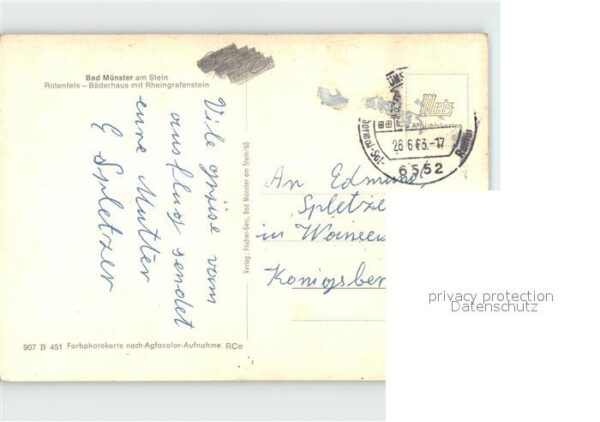 Bad Münster am Stein
Rotenfels – Bäderhaus mit Rheingrafenstein
Viele grüsse vom
ausflug sendet
eure Mutter
G Spletzer
Verlag: Fischer-Gein, Bad Münster am Stein/63
Metz
Ansichtskarten
26.6.63.-17
6552
An Edmund
Spletze
in
Königsber
907 B 451 Farbphotokarte nach Agfacolor-Aufnahme RCe
privacy protection
Datenschutz